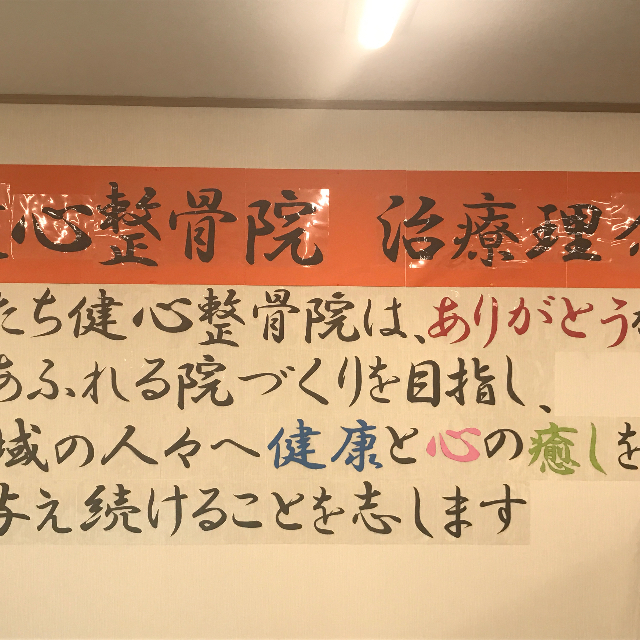 心整骨院 治療理
たち健心整骨院は、ありがとう
あふれる院づくりを目指し、
域の人々へ健康と心の癒しを
与え続けることを志します